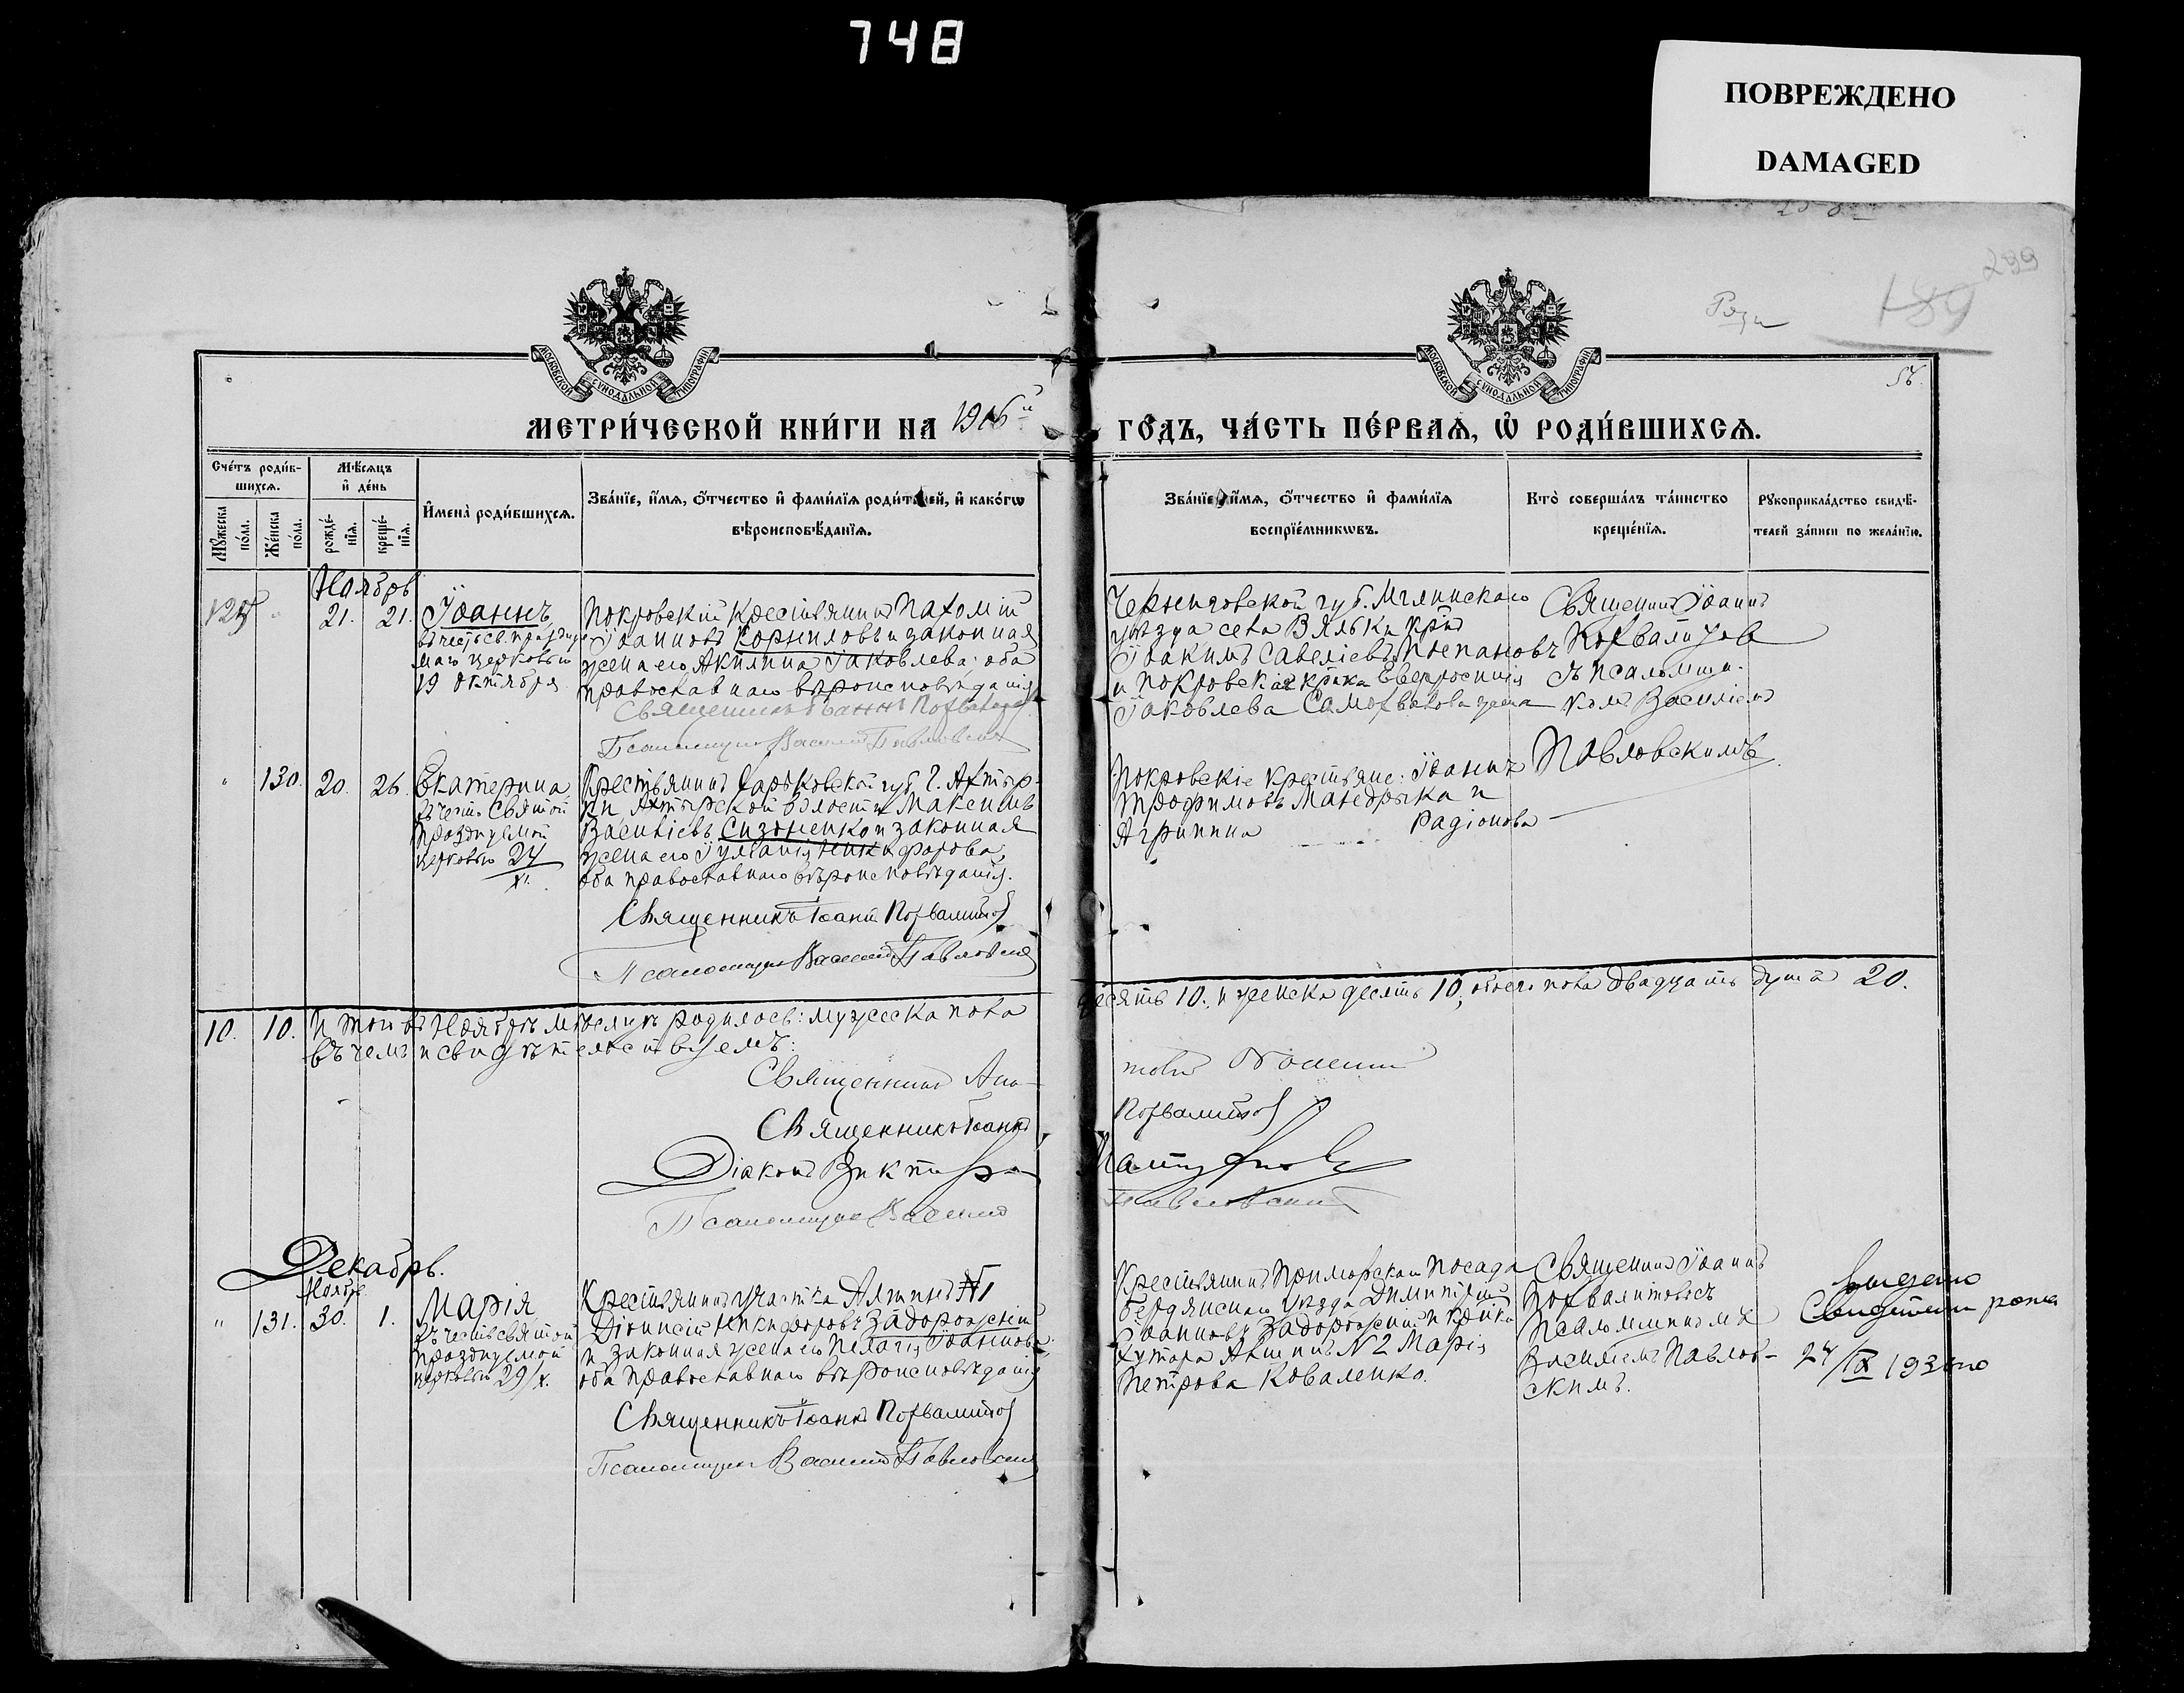 748
ПОВРЕЖДЕНО
DAMAGED
299
189
МОСКОВСКОЙ СѴНОДАЛЬНОЙ ТИПОГРАФІИ
МОСКОВСКОЙ СѴНОДАЛЬНОЙ ТИПОГРАФІИ
МЕТРИ́ЧЕСКОЙ КНИ́ГИ НА 1916й
ГО́ДЪ, ЧА́СТЬ ПЕ́РВАѦ, Ѡ҆ РОДИ́ВШИХСѦ.
Сче́тъ роди́в-
шихсѧ.
Мѣ́сѧцъ
и҆ де́нь
Мꙋ́жеска
по́ла.
Же́нска
по́ла.
рожде́-
нїѧ.
креще́-
нїѧ.
И҆мена̀ роди́вшихсѧ.
Зва́нїе, и҆́мѧ, ѻ҆́тчество и҆ фами́лїѧ роди́телей, и҆ како́гѡ
вѣроисповѣ́данїѧ.
Зва́нїе, и҆́мѧ, ѻ҆́тчество и҆ фами́лїѧ
воспрїе́мникѡвъ.
Кто̀ соверша́лъ та́инство
креще́нїѧ.
Рꙋкоприкла́дство свидѣ́-
телей за́писи по жела́нїю.
Ноябрь
129 21. 21. Іоаннъ
въ честь св. праздну
маго церковью
19 октября
Покровскій крестьянинъ Пахомій
Іоанновъ Корниловъ и законная
жена его Акилина Іаковлева: оба
православнаго вѣроисповѣданія
Священникъ Іоаннъ Похвалитовъ
Псаломщикъ Василій Павловскій
Черниговской губ. Мглинскаго
уѣзда села Вяльки кр-нъ
Іоакимъ Савеліевъ Степановъ
и Покровская кр-ка Евфросинія
Іаковлева
Священникъ Іоаннъ
Похвалитовъ
съ псаломщи-
комъ Василіемъ
Павловскимъ
" 130. 20. 26. Екатерина
въ честь Святой
празднуемой
церковью 24/XI.
Крестьянинъ Харьковской губ. Г. Ахтыр-
ки Ахтырской волости Максимъ
Васильевъ Сизоненко и законная
жена его Іуліанія Никифорова,
оба православнаго вѣроисповѣданія.
Священникъ Іоаннъ Похвалитовъ
Псаломщикъ Василій Павловскій
Покровскіе крестьяне: Іоаннъ
Трофимовъ Мандрыка и
Агрипина Радіонова
10. 10. Итого въ Ноябрѣ мѣсяцѣ родилось: мужеска пола
десять 10. и женска десять 10, обоего пола двадцать душъ 20.
въ чемъ и свидѣтельствуемъ:
Священникъ
Священникъ Іоаннъ Похвалитовъ
Діаконъ Викторъ
Псаломщикъ Василій Павловскій
Декабрь.
Ноябр.
" 131. 30. 1. Марія
въ честь святой
празднуемой
церковью 29/X.
Крестьянинъ участка Алтынъ №1
Діонисій Никифоровъ Задорожскій
и законная жена его Пелагія Іоаннова,
оба православнаго вѣроисповѣданія
Священникъ Іоаннъ Похвалитовъ
Псаломщикъ Василій Павловскій
Крестьянинъ Приморскаго посада
Бердянскаго уѣзда Димитрій
Іоанновъ Задорожскій и кр-нка
хутора №2 Марія
Петрова Коваленко.
Священникъ Іоаннъ
Похвалитовъ съ
псаломщикомъ
Василіемъ Павлов-
скимъ.
выдано
24/IX 193